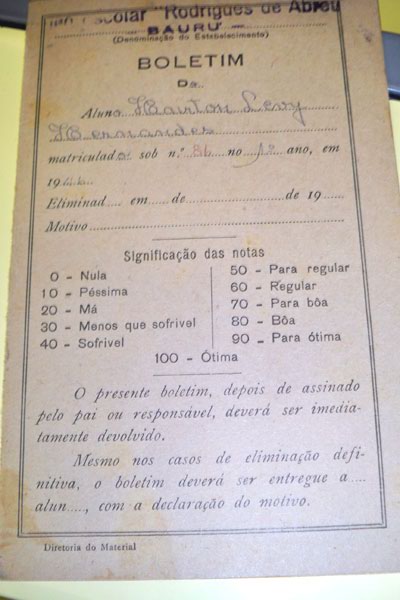 Escolar "Rodrigues de Abreu"
— BAURU —
(Denominação do Estabelecimento)
BOLETIM
Do
Aluno Hamilton Levy
Hernandes
matriculado sob n.º 36 no 1º ano, em
1946
Eliminad..... em.....de.....................de 19.....
Motivo.............................................
Significação das notas
0 - Nula
10 - Péssima
20 - Má
30 - Menos que sofrivel
40 - Sofrivel
50 - Para regular
60 - Regular
70 - Para bôa
80 - Bôa
90 - Para ótima
100 - Ótima
O presente boletim, depois de assinado
pelo pai ou responsável, deverá ser imedia-
tamente devolvido.
Mesmo nos casos de eliminação defi-
nitiva, o boletim deverá ser entregue a....
alun....., com a declaração do motivo.
Diretoria do Material